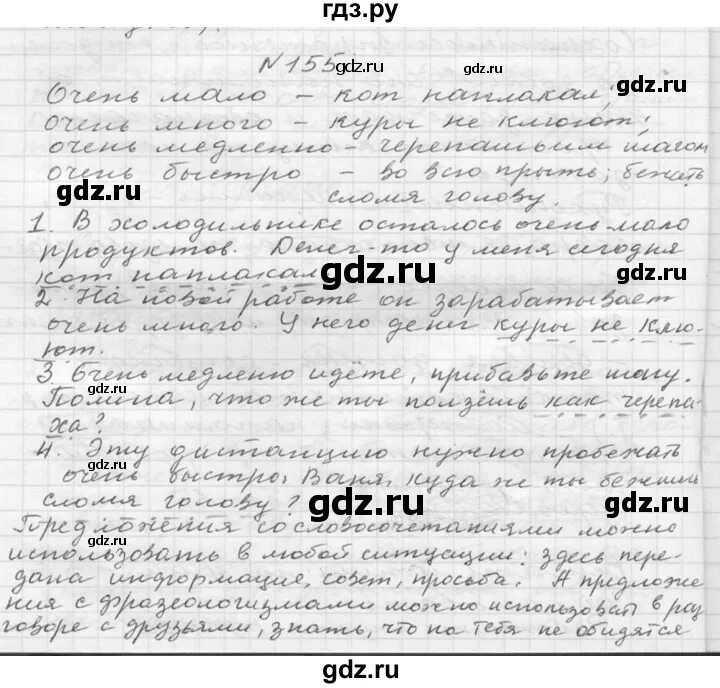 гдз.ру
№ 155
Очень мало – кот наплакал;
очень много – куры не клюют;
очень медленно – черепашьим шагом
очень быстро – во всю прыть; бежать
сломя голову.
1. В холодильнике осталось очень мало
продуктов. Денег-то у меня сегодня
кот наплакал
2. На новой работе он зарабатывает
очень много. У него денег куры не клю-
ют.
3. Очень медленно идёте, прибавьте шагу.
Полина, что же ты ползёшь как черепа-
ха?
4. Эту дистанцию нужно пробежать
очень быстро. Ваня, куда же ты бежишь
сломя голову?
Предложения со словосочетаниями можно
использовать в любой ситуации: здесь пере-
дана информация, совет, просьба. А предложе
ния с фразеологизмами можно использовать в раз
говоре с друзьями, знать, что на тебя не обидятся
gdz.ru
gdz.ru
gdz.ru
gdz.ru
gdz.ru
gdz.ru
gdz.ru
gdz.ru
gdz.ru
gdz.ru
gdz.ru
gdz.ru
gdz.ru
gdz.ru